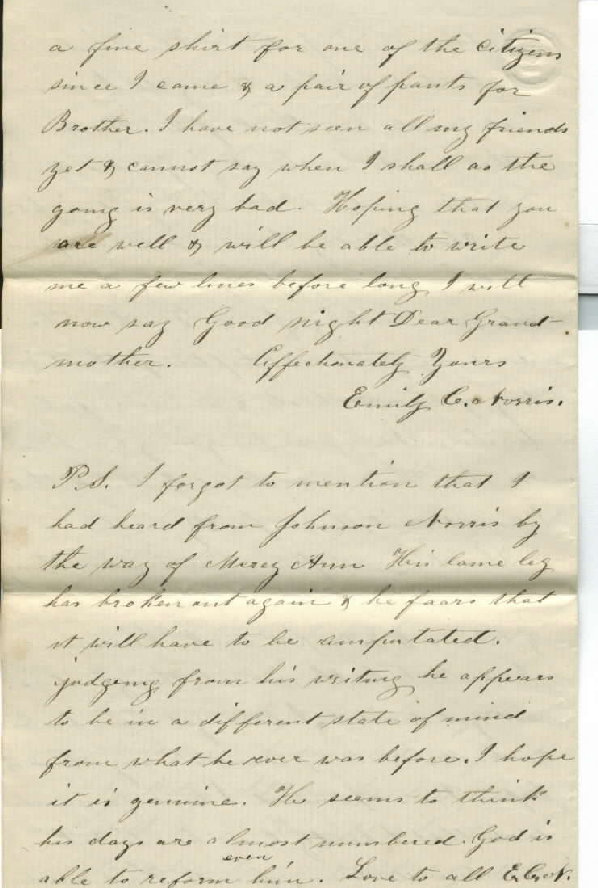 a fine shirt for one of the citizens
since I came & a pair of pants for
Brother. I have not seen all my friends
yet & cannot say when I shall as the
going is very bad. Hoping that you
are well & will be able to write
me a few lines before long I will
now say Good night Dear Grand-
mother. Affectionately Yours
Emily C. Norris.
P.S. I forgot to mention that I
had heard from Johnson Norris by
the way of Mercy Ann His lame leg
has broken out again & he fears that
it will have to be amputated.
judgeing from his writing he appears
to be in a different state of mind
from what he ever was before. I hope
it is genuine. He seems to think
his days are almost numbered. God is
even
able to reform him. Love to all E.C.N.